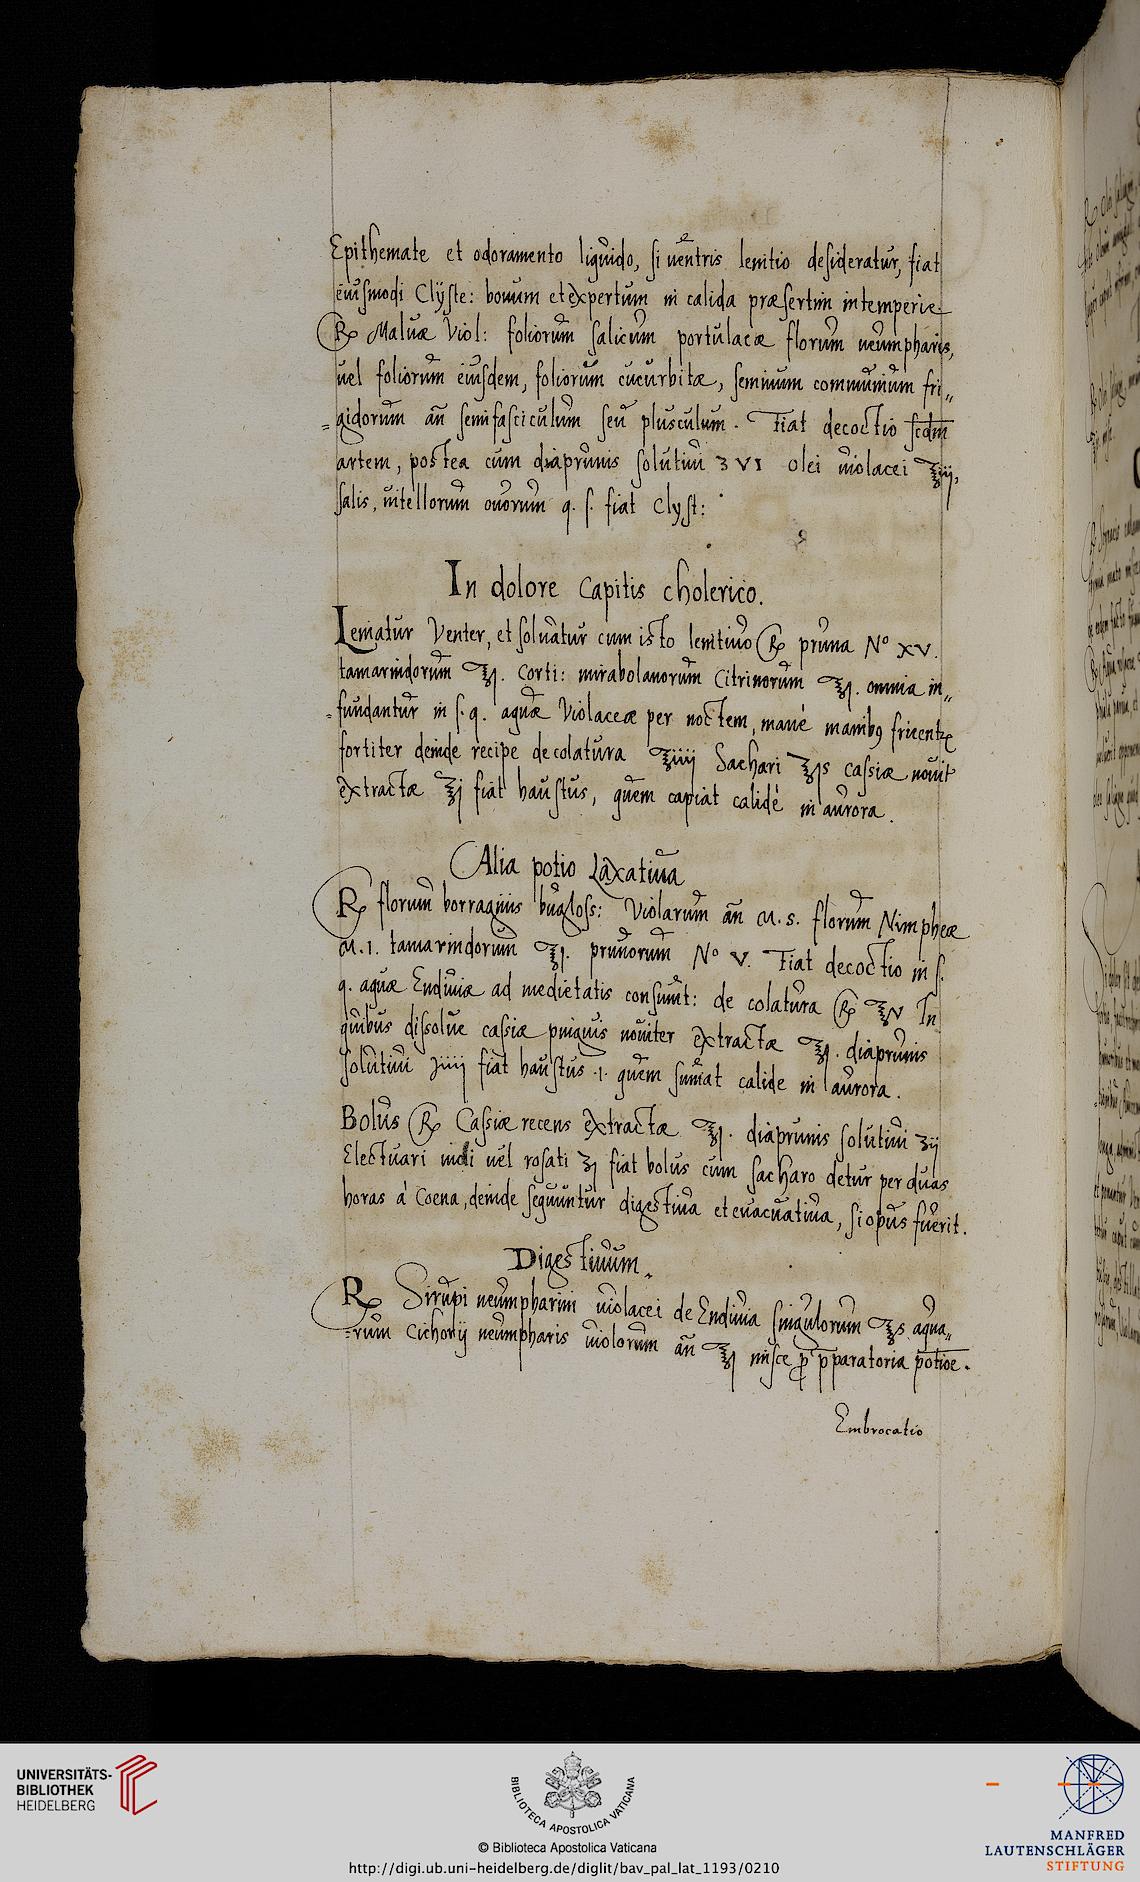 Epithemate et odoramento liquido, si uentris lenitio desideratur, fiat
eiusmodi Clÿste: bonum et expertum in calida præsertim intemperie
℞ Maluæ Viol: foliorum salicum portulacæ florum neumpharis,
uel foliorum eiusdem, foliorum cucurbitæ, seminum communium fri„
„gidorum añ semifasciculum seu plusculum. Fiat decoctio scdm̄
artem, postea cum diaprunis solutiui ʒ VI olei uiolacei ℥iij,
salis, uitellorum ouorum q. s. fiat Clyst:
In dolore Capitis cholerico.
Leniatur Venter, et soluatur cum isto lenitiuo ℞ pruna Nº XV.
tamarindorum ℥j. Corti: mirabolanorum Citrinorum ℥j. omnia in„
„fundantur in s. q. aquæ Violaceæ per noctem, mané manibꝫ fricentꝛ
fortiter deinde recipe decolatura ℥iiij Sachari ℥js cassiæ nouit
extractæ ℥j fiat haustus, quem capiat calidé in aurora.
Alia potio Laxatiua
℞ florum borraginis bugloss: Violarum añ M. s. florum Nimpheæ
M. 1. tamarindorum ℥j. prunorum Nº V. Fiat decoctio in s.
q. aquæ Endiuiæ ad medietatis consumt: de colatura ℞ ℥V In
quibus dissolue cassiæ pinguis nouiter extractæ ℥j. diaprunis
solutiui ʒiiij fiat haustus .1. quem sumat calide in aurora.
Bolus ℞ Cassiæ recens extractæ ℥j. diaprunis solutiui ʒij
Electuari indi uel rosati ʒj fiat bolus cum sacharo detur per duas
horas á Coena, deinde sequuntur digestiua et euacuatiua, si opus fuerit.
Digestiuum.
℞ Sirupi neumpharini uiolacei de Endiuia singulorum ℥s aqua„
„rum Cichorij neumpharis uiolorum añ ℥j misce ꝓ p̄paratoria potioē.
Embrocatio
UNIVERSITÄTS-
BIBLIOTHEK
HEIDELBERG
BIBLIOTECA APOSTOLICA VATICANA
© Biblioteca Apostolica Vaticana
http://digi.ub.uni-heidelberg.de/diglit/bav_pal_lat_1193/0210
MANFRED
LAUTENSCHLÄGER
STIFTUNG